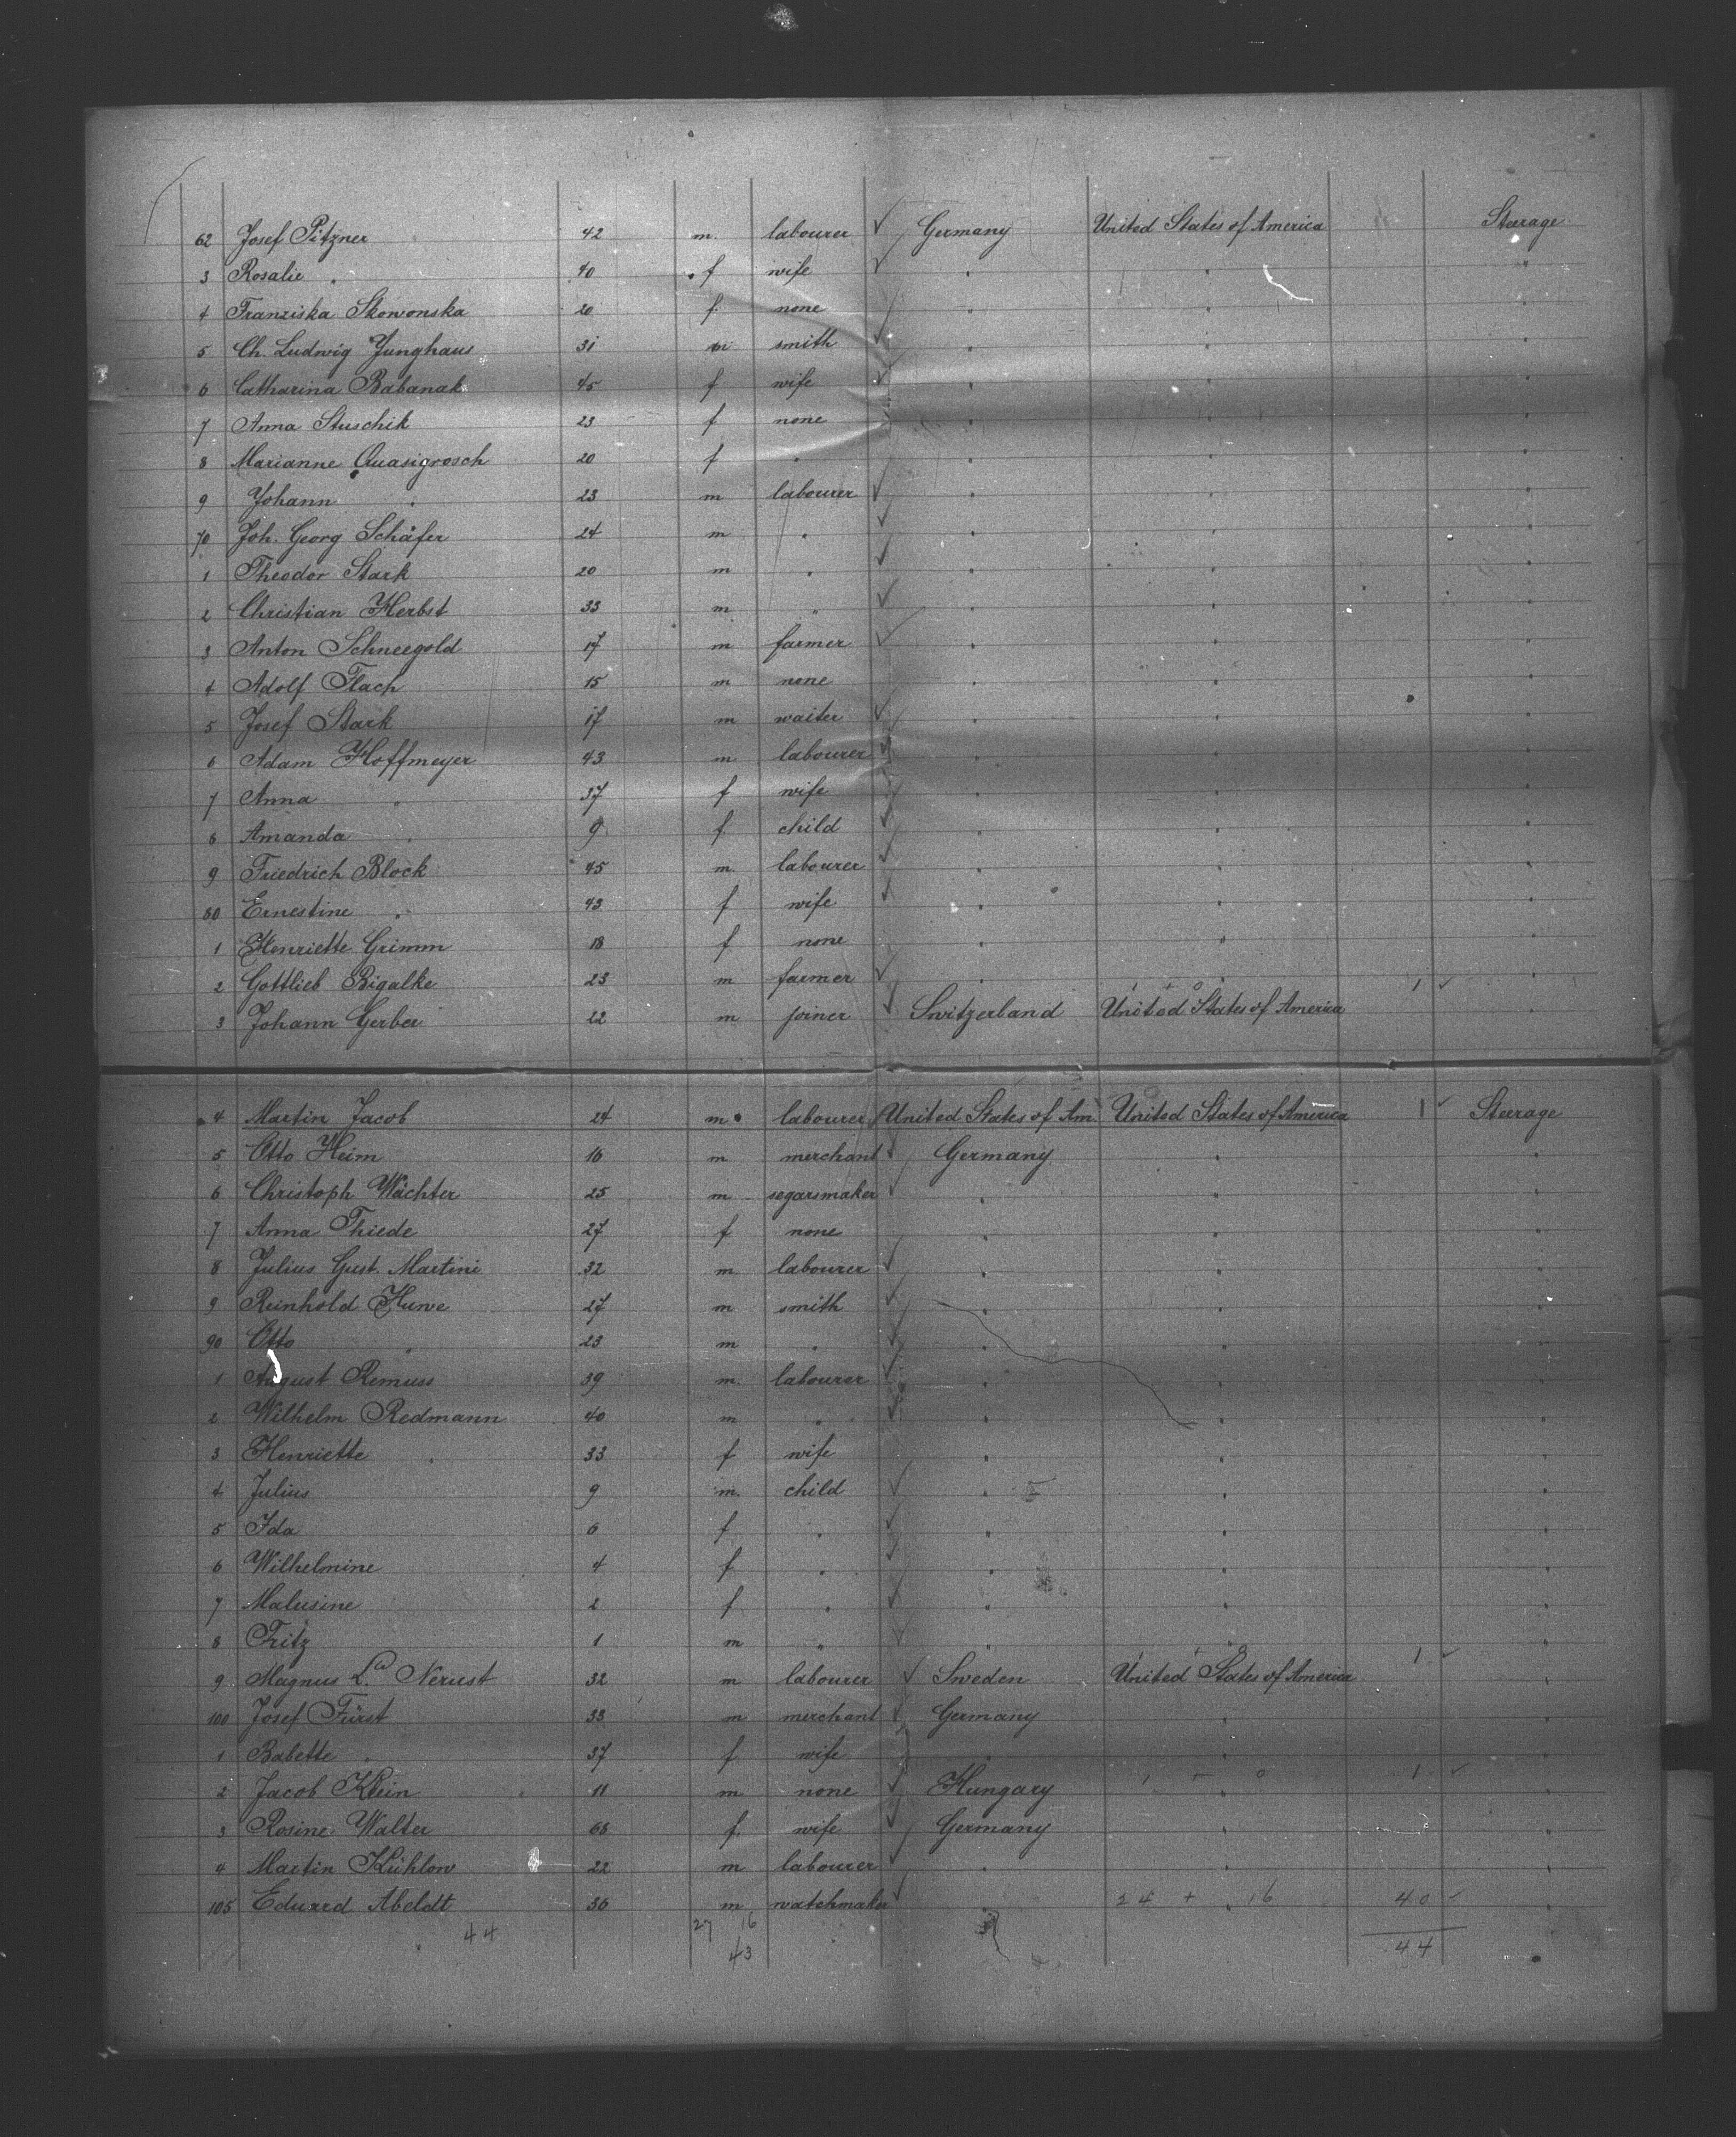 62 Josef Pitzner 42 m. labourer ✓ Germany United States of America Steerage
3 Rosalie " 40 f wife ✓ " " "
4 Franziska Skowonska 20 f. none " " "
5 Ch. Ludwig Junghaus 31 m smith ✓ " " "
6 Catharina Babanak 45 f wife ✓ " " "
7 Anna Stuschik 23 f none " " "
8 Marianne Quasigrosch 20 f " " " "
9 Johann " 23 m labourer ✓ " " "
70 Joh. Georg Schäfer 24 m " ✓ " " "
1 Theodor Stark 20 m " ✓ " " "
2 Christian Herbst 33 m " ✓ " " "
3 Anton Schneegold 17 m farmer ✓ " " "
4 Adolf Flach 15 m none " " "
5 Josef Stark 17 m waiter ✓ " " "
6 Adam Hoffmeyer 43 m labourer ✓ " " "
7 Anna " 37 f wife " " "
8 Amanda " 9 f. child ✓ " " "
9 Friedrich Block 45 m labourer ✓ " " "
80 Ernestine " 43 f wife ✓ " " "
1 Henriette Grimm 18 f none " " "
2 Gottlieb Bigalke 23 m farmer ✓ " " "
3 Johann Gerber 22 m joiner ✓ Switzerland United States of America 1 ✓ "
4 Martin Jacob 24 m labourer United States of Am. United States of America 1 ✓ Steerage
5 Otto Heim 16 m merchant ✓ Germany " "
6 Christoph Wächter 25 m segarsmaker ✓ " " "
7 Anna Thiede 27 f none " " "
8 Julius Gust. Martini 32 m labourer ✓ " " "
9 Reinhold Huwe 27 m smith ✓ " " "
90 Otto " 23 m " ✓ " " "
1 August Remuss 39 m. labourer ✓ " " "
2 Wilhelm Redmann 40 m " ✓ " " "
3 Henriette " 33 f wife " " "
4 Julius 9 m. child ✓ " " "
5 Ida 6 f " ✓ " " "
6 Wilhelmine 4 f " ✓ " " "
7 Malusine 2 f " ✓ " " "
8 Fritz 1 m " ✓ " " "
9 Magnus Nerust 32 m labourer ✓ Sweden United States of America 1 ✓ "
100 Josef Fürst 33 m merchant ✓ Germany " "
1 Babette " 37 f wife " " "
2 Jacob Klein 11 m none ✓ Hungary " 1 ✓ "
3 Rosine Walter 68 f wife ✓ Germany " "
4 Martin Kühlow 22 m labourer ✓ " " "
105 Eduard Abeldt 36 m watchmaker ✓ " 24 + 16 40 ✓ "
44 27 16 44
43